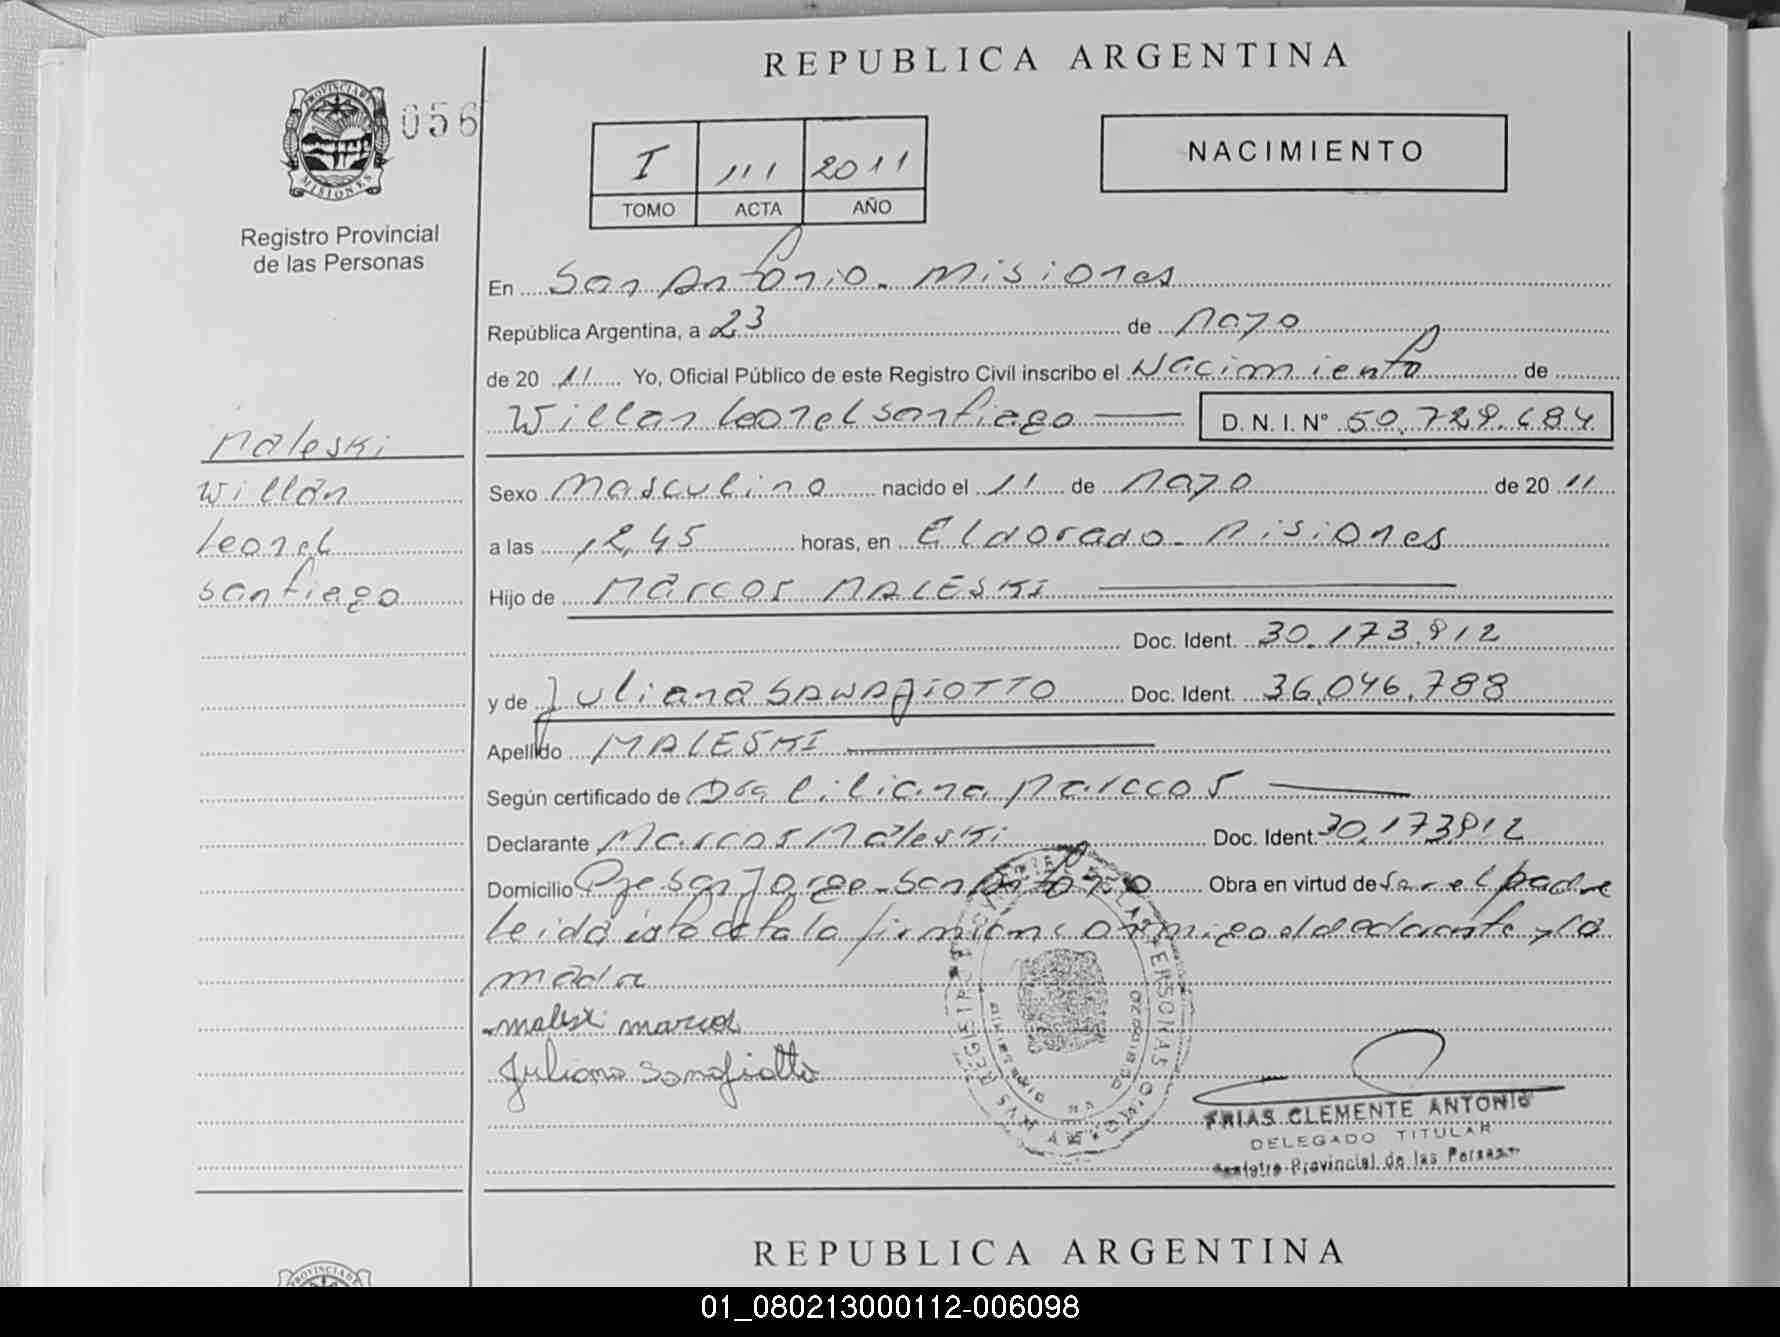 REPUBLICA ARGENTINA
PROVINCIA DE
MISIONES
056
Registro Provincial
de las Personas
I 111 2011
TOMO ACTA AÑO
NACIMIENTO
En San Antonio - Misiones
República Argentina, a 23 de Mayo
de 20 11 Yo, Oficial Público de este Registro Civil inscribo el Nacimiento de
Willan Leonel Santiago D. N. I. Nº 50.729.684
Maleski
Willán
Leonel
Santiago
Sexo Masculino nacido el 11 de Mayo de 20 11
a las 12,45 horas, en Eldorado - Misiones
Hijo de Marcos MALESKI
Doc. Ident. 30.173.912
y de Juliana SAWAJIOTTO Doc. Ident. 36.046.788
Apellido MALESKI
Según certificado de Dra Liliana
Declarante Marcos Maleski Doc. Ident. 30.173.912
Domicilio Pje San Jorge - San Antonio Obra en virtud de Ser el padre
Leida esta acta la firman conmigo el declarante y la
madre
Maleski marcos
Juliana
FRIAS CLEMENTE ANTONIO
DELEGADO TITULAR
Registro Provincial de las Personas
REPUBLICA ARGENTINA
PROVINCIA DE
01_080213000112-006098